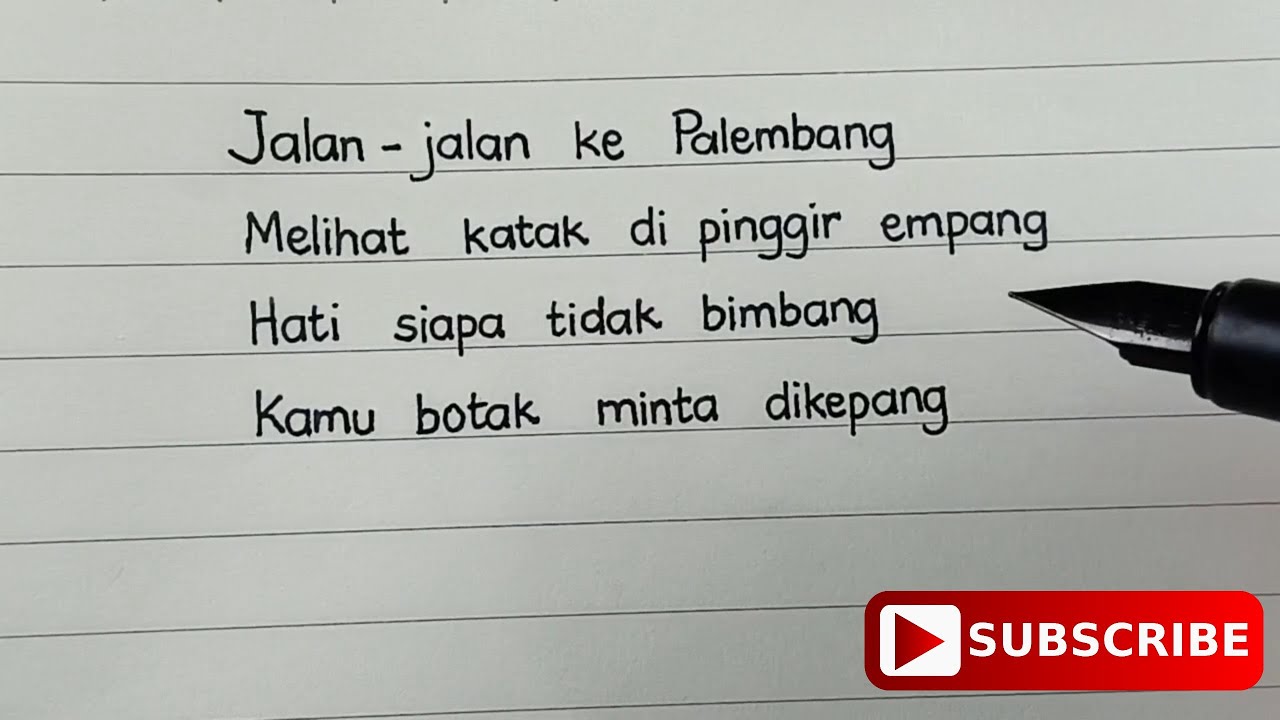 Jalan-jalan ke Palembang
Melihat katak di pinggir empang
Hati siapa tidak bimbang
Kamu botak minta dikepang
SUBSCRIBE